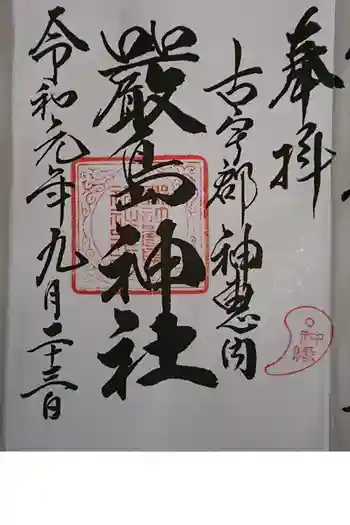 奉拝
古宇郡 神恵内
嚴島神社
令和元年九月二十三日